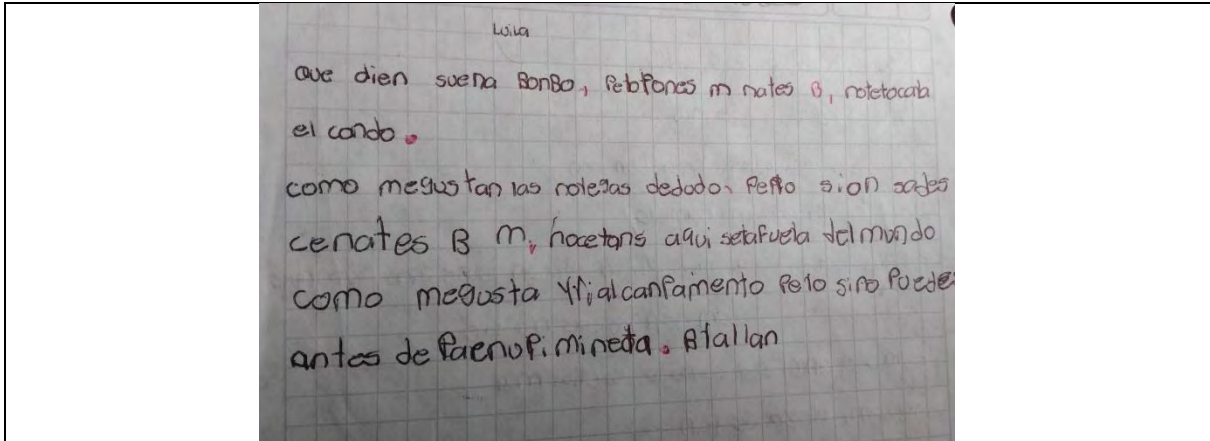 Luisa
que dien suena BonBo, Pebpones m nates B, notetocab
el condo.
como megustan las nolesas dedodo. Pero sion sades
cenates B m, hacetons aqui setafuela del mundo
como megusta Yrialcanpamento Pelo sino Puede
antes de Paenopi mineta. Bfallan